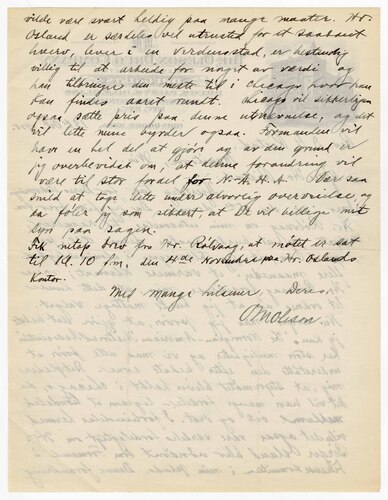 vilde være svært heldig paa mange maater. Hr.
Osland er særdeles vel utrustet for et saadant
hverv, lever i en verdensstad, er bestandig
villig til at arbeide for noget av værdi og
han tilbringer den meste tid i Chicago hvor han
kan findes aaret rundt. Chicago vil sikkerligen
ogsaa sætte pris paa denne utnævnelse, og det
vil lette mine byrder ogsaa. Formanden vil
have en hel del at gjøre og av den grund er
jeg overbevidst om, at denne forandring vil
være til stor fordel for N.-A. H. A. Vær saa
snild at tage dette under alvorlig overveielse, og
da føler jeg som sikkert, at De vil billige mit
syn paa sagen.
Fik netop brev fra Hr. Rölvaag, at mötet er sat
til 10 fm. den 4de November paa Hr. Oslands
Kontor.
Med mange hilsener Deres,
O M Oleson.